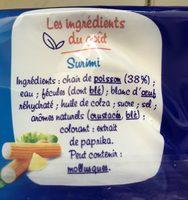 Les ingrédients
du goût
Surimi
Ingrédients : chair de poisson (38%) ;
eau ; fécules (dont blé) ; blanc d'oeuf
réhydraté ; huile de colza ; sucre ; sel ;
arômes naturels (crustacés, blé) ;
colorant : extrait
de paprika.
Peut contenir :
mollusques.